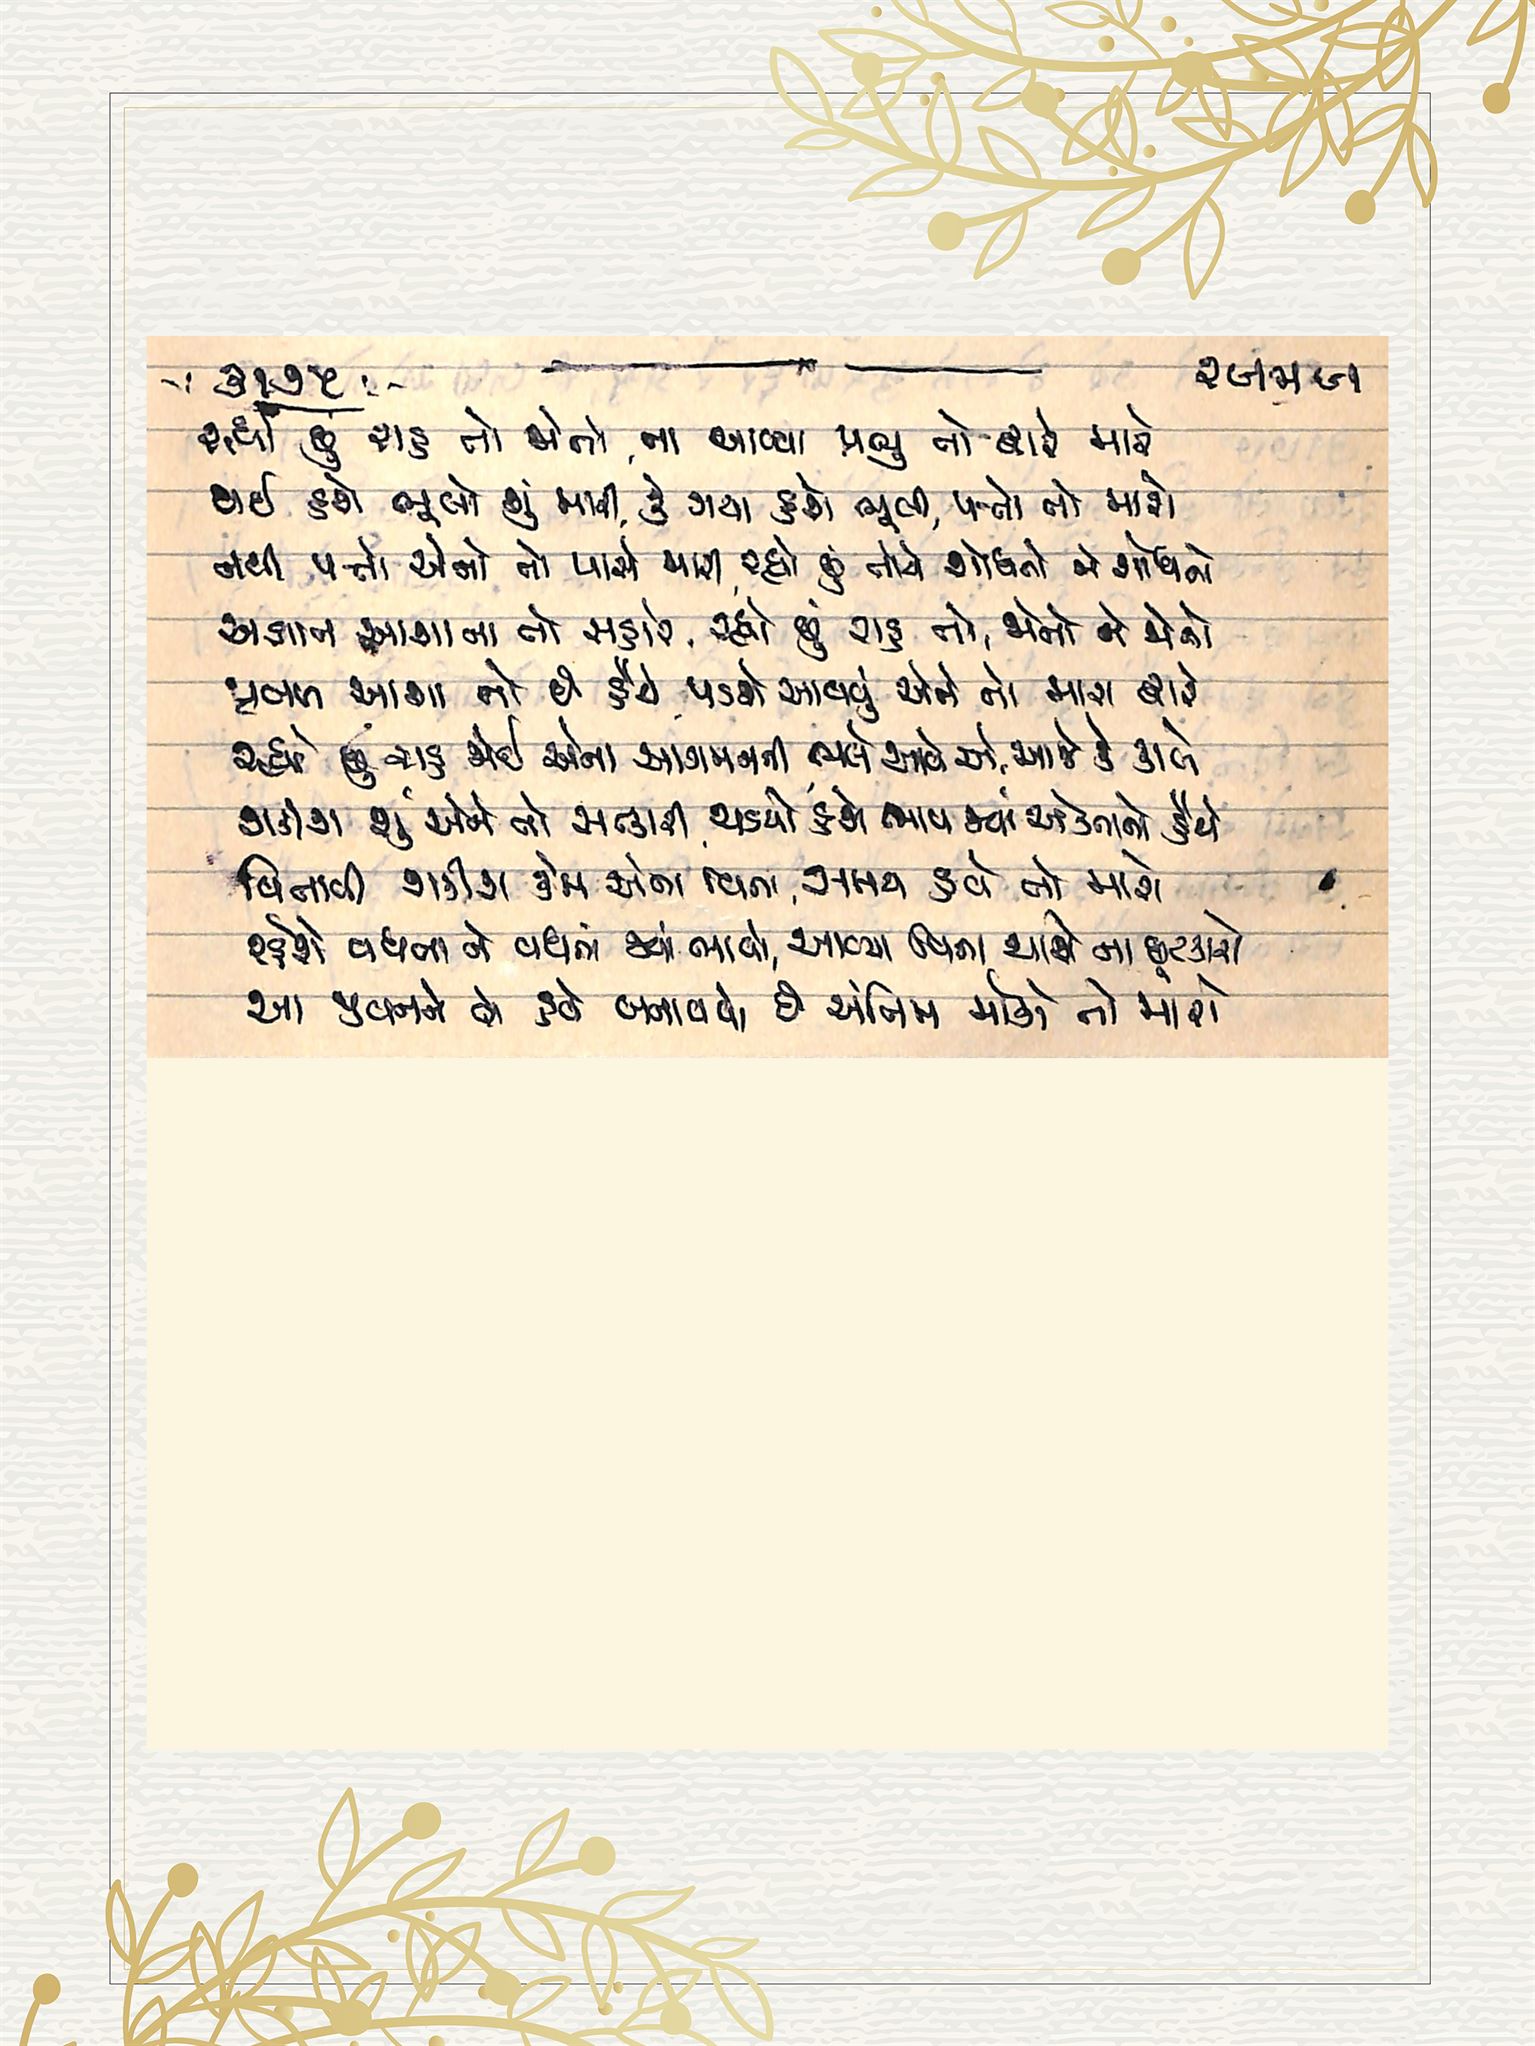 -: ૩૧૭૫ :-
રહ્યો છું રાહ તો જોતો, ના આવ્યા પ્રભુ તો દ્વારે મારે
થઈ હશે ભૂલો શું મારી, કે ગયા હશે ભૂલી, પત્તો તો મારો
નથી પત્તો એનો તો પાસે મારી, રહ્યો છું તોયે શોધતો ને શોધતો
અજ્ઞાન આશાના તો સહારે, રહ્યો છું રાહ તો, જોતો ને જોતો
પ્રબળ આશા તો છે હૈયે, પડશે આવવું એને તો મારા દ્વારે
રહ્યો છું રાહ જોઈ એના આગમનની, ભલે આવે એ, આજે કે કાલે
શકીશ શું એને તો સત્કારી, ચડયો હશે ભાવ જ્યાં એકતાનો હૈયે
વિતાવી શકીશ કેમ એના વિના, સમય હવે તો મારો
રહેશે વધતા ને વધતાં જ્યાં ભાવો, આવ્યા વિના થાશે ના છૂટકારો
આ જીવનને તો હવે બનાવવો, છે અંતિમ મોકો તો મારો